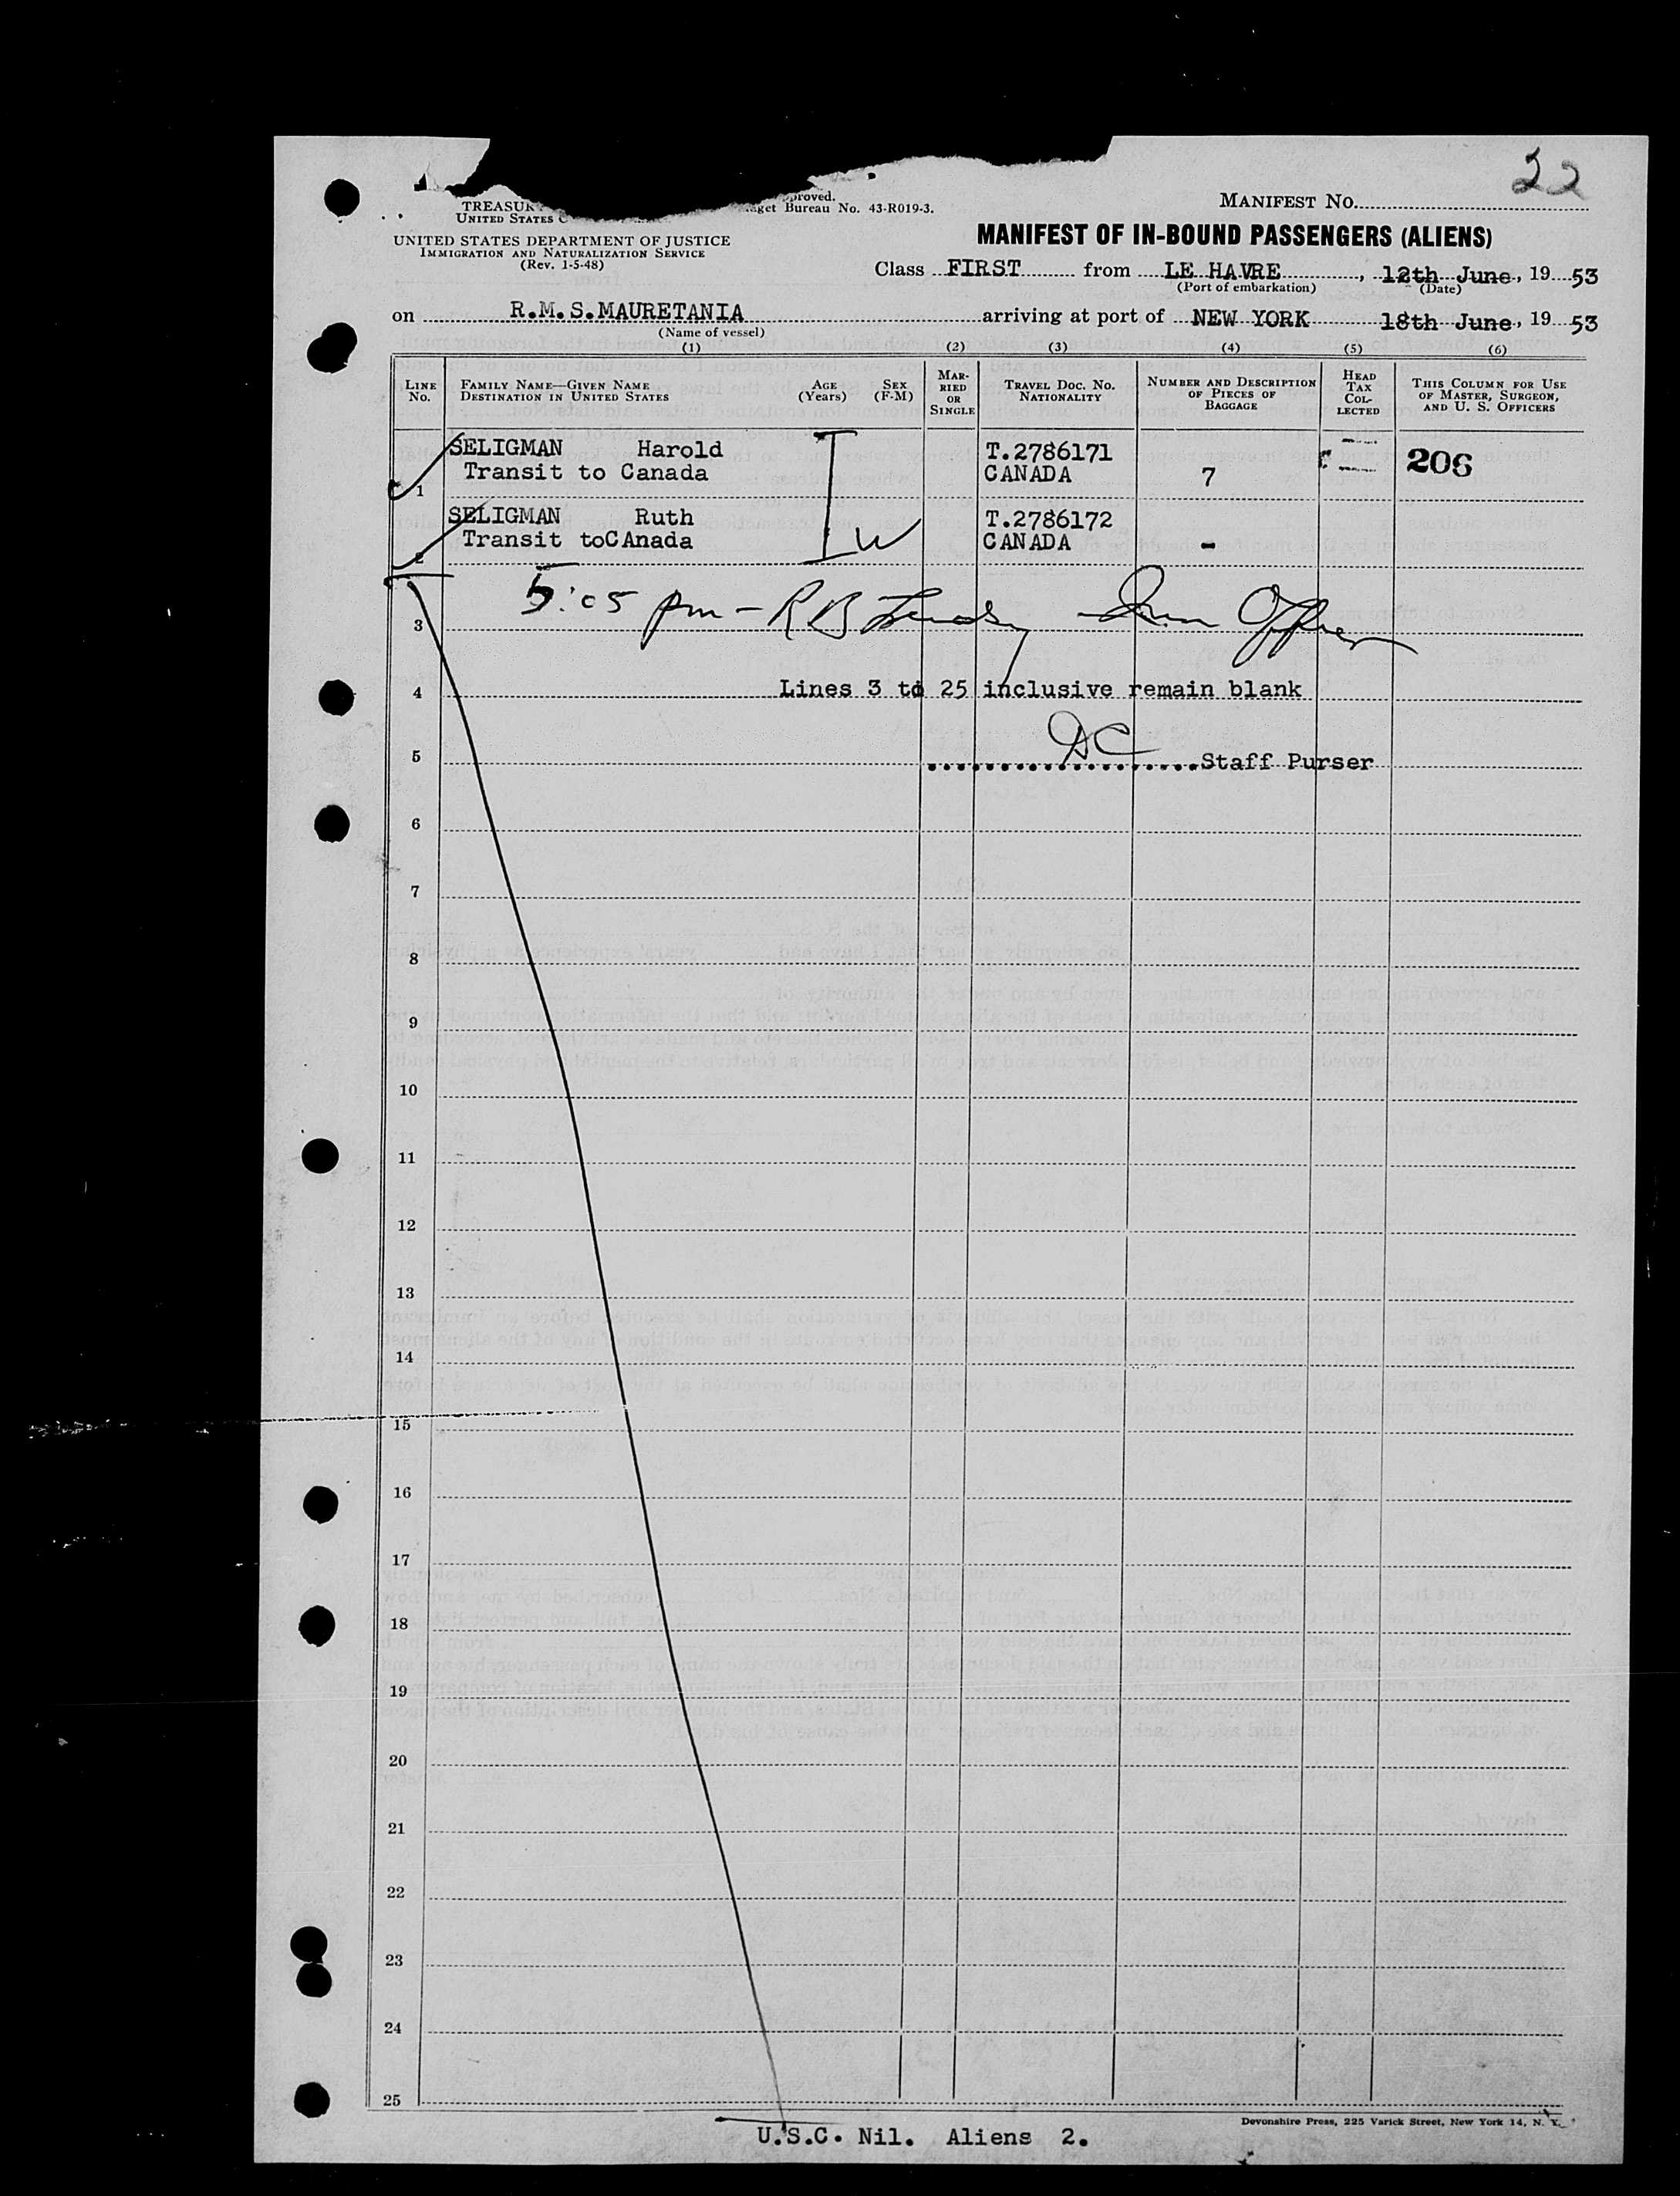 22
TREASU
UNITED STATES C
proved.
get Bureau No. 43-R019-3.
MANIFEST No.
UNITED STATES DEPARTMENT OF JUSTICE
IMMIGRATION AND NATURALIZATION SERVICE
(Rev. 1-5-48)
MANIFEST OF IN-BOUND PASSENGERS (ALIENS)
Class FIRST from LE HAVRE, 12th June, 19 53
(Port of embarkation) (Date)
on R.M.S.MAURETANIA arriving at port of NEW YORK 18th June, 19 53
(Name of vessel)
(1) (2) (3) (4) (5) (6)
LINE No. FAMILY NAME—GIVEN NAME DESTINATION IN UNITED STATES AGE (Years) SEX (F-M) MARRIED OR SINGLE TRAVEL DOC. NO. NATIONALITY NUMBER AND DESCRIPTION OF PIECES OF BAGGAGE HEAD TAX COLLECTED THIS COLUMN FOR USE OF MASTER, SURGEON, AND U. S. OFFICERS
SELIGMAN Harold T.2786171 206
1 Transit to Canada CANADA 7
SELIGMAN Ruth T.2786172
2 Transit toCAnada W CANADA -
3 5:05 pm - R B Imm Officer
4 Lines 3 to 25 inclusive remain blank
DC
5 Staff Purser
6
7
8
9
10
11
12
13
14
15
16
17
18
19
20
21
22
23
24
25
Devonshire Press, 225 Varick Street, New York 14, N. Y.
U.S.C. Nil. Aliens 2.